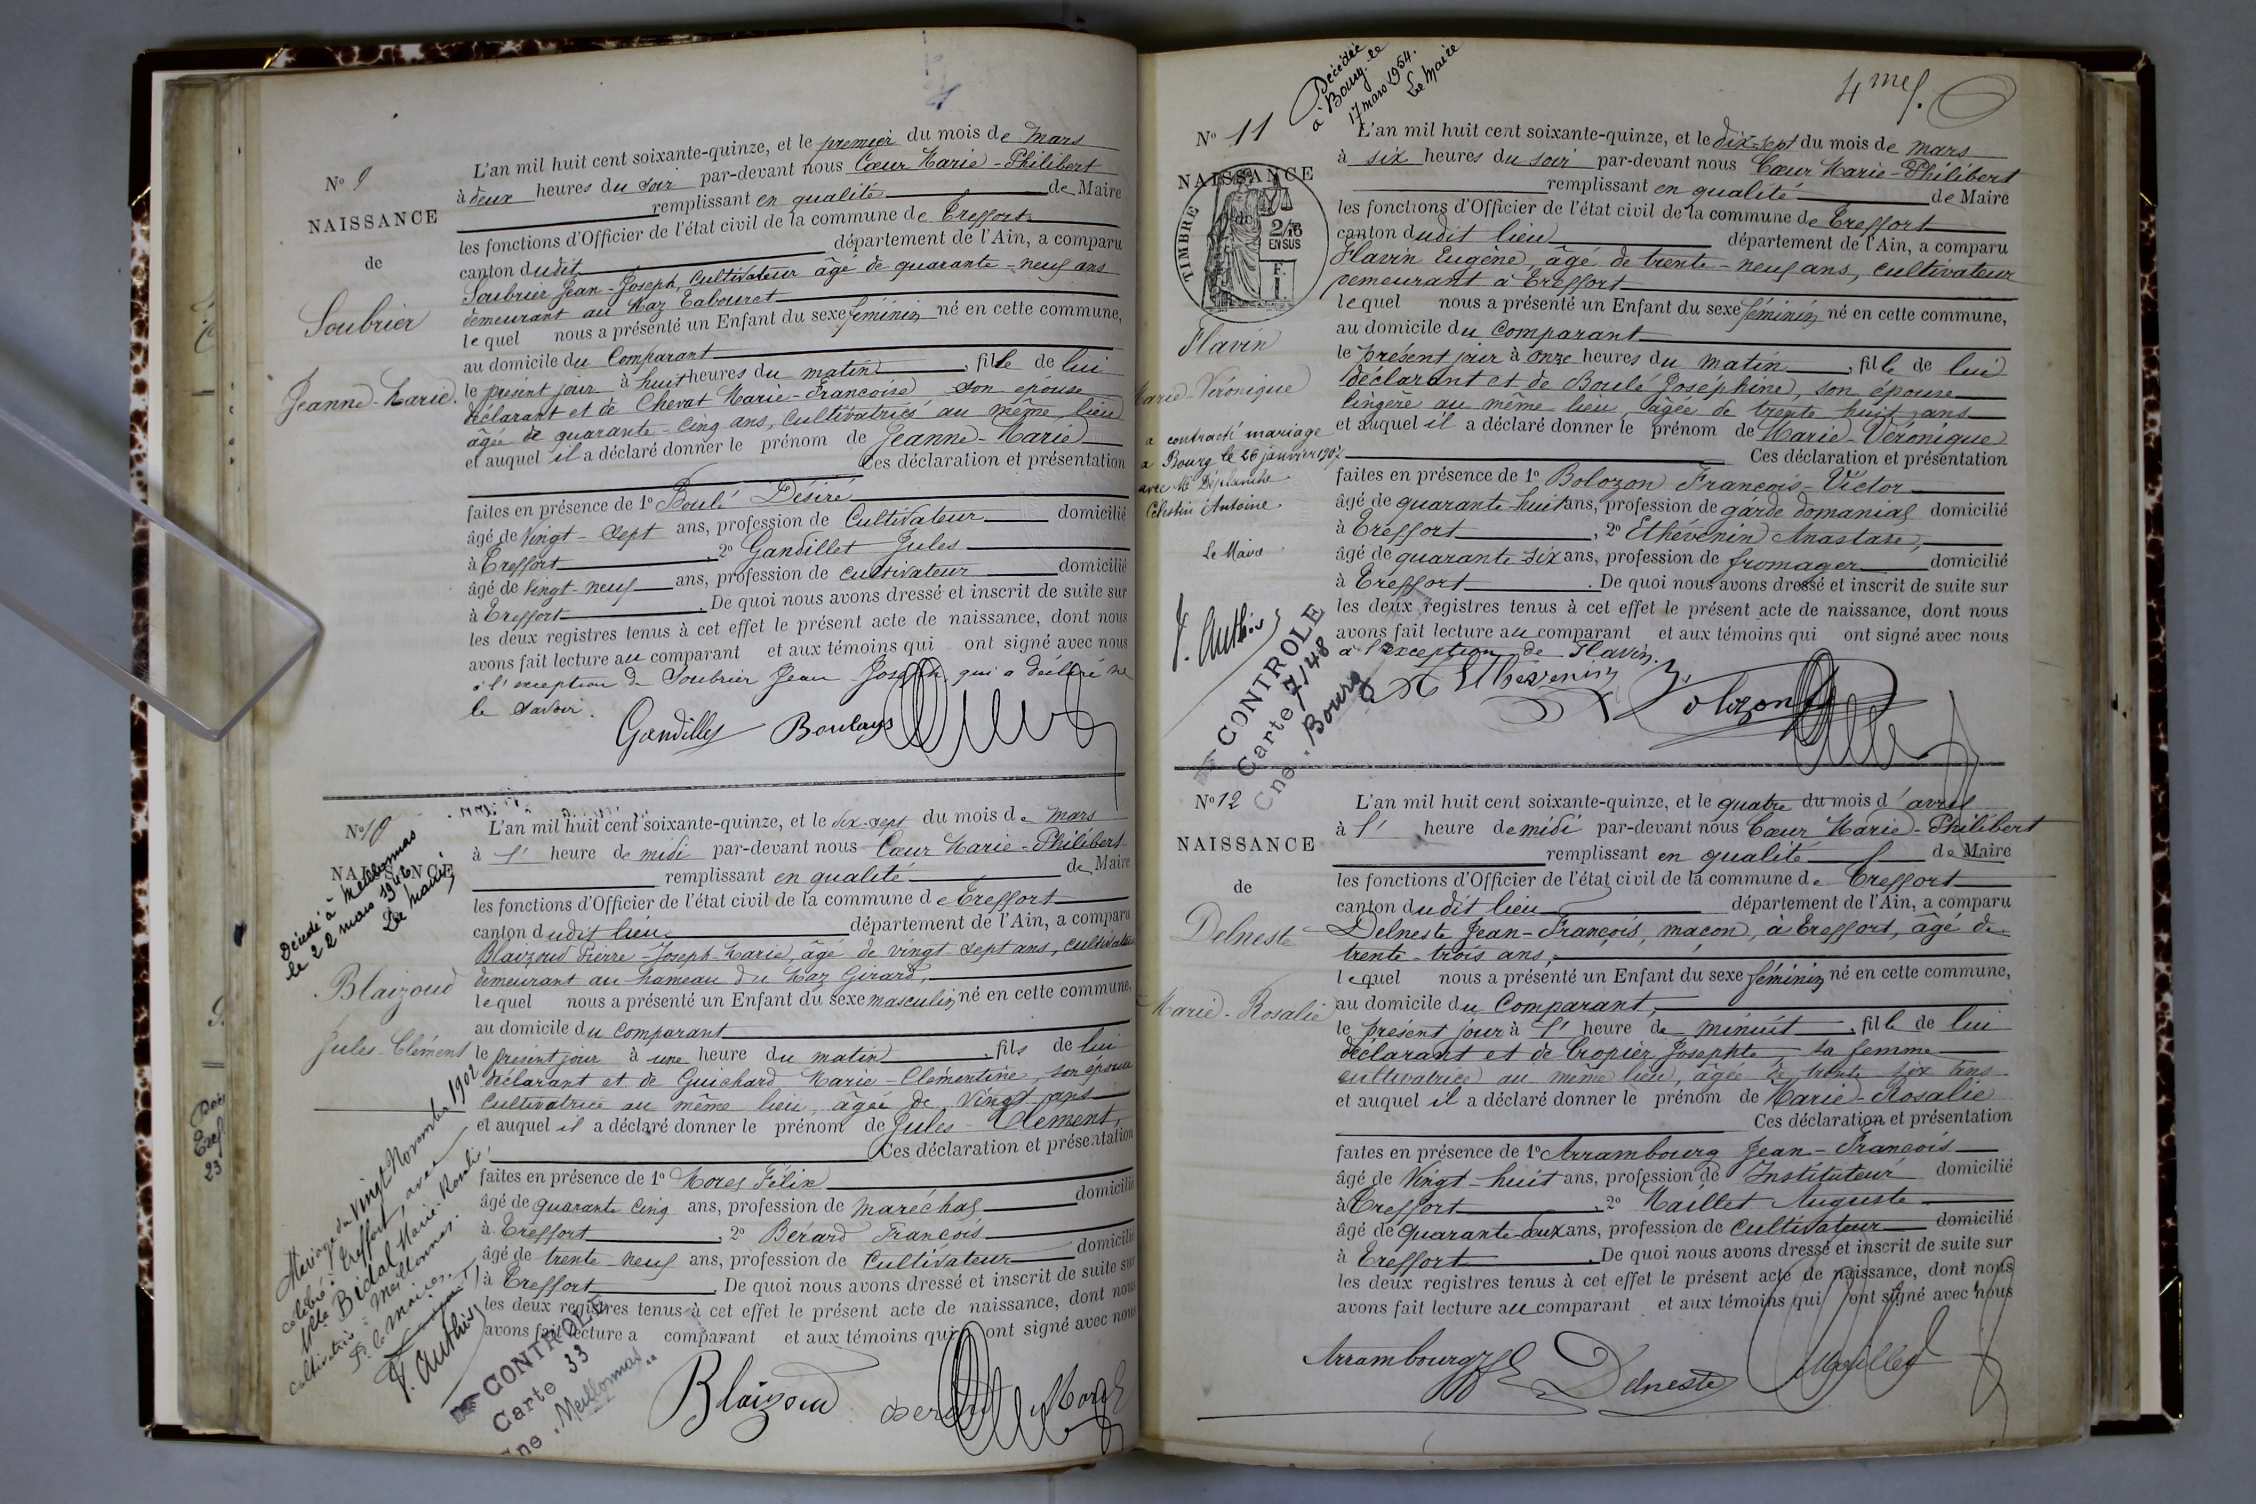 N° 9
NAISSANCE
de
Soubrier
Jeanne-Marie.
L'an mil huit cent soixante-quinze, et le premier du mois de mars
à deux heures du soir par-devant nous Cœur Marie-Philibert
remplissant en qualité de Maire
les fonctions d'Officier de l'état civil de la commune de Treffort
canton dudit département de l'Ain, a comparu
Soubrier Jean-Joseph, Cultivateur âgé de quarante-neuf ans
demeurant au Maz Tabouret
lequel nous a présenté un Enfant du sexe féminin né en cette commune,
au domicile du Comparant
le présent jour à huit heures du matin, fille de lui
déclarant et de Chevat Marie-Françoise son épouse
âgée de quarante-cinq ans, Cultivatrice au même lieu
et auquel il a déclaré donner le prénom de Jeanne-Marie
Ces déclaration et présentation
faites en présence de 1° Boulé Désiré
âgé de Vingt-sept ans, profession de Cultivateur domicilié
à Treffort, 2° Gandillet Jules
âgé de vingt-neuf ans, profession de cultivateur domicilié
à Treffort. De quoi nous avons dressé et inscrit de suite sur
les deux registres tenus à cet effet le présent acte de naissance, dont nous
avons fait lecture au comparant et aux témoins qui ont signé avec nous
à l'exception de Soubrier Jean Joseph qui a déclaré ne
le savoir.
N° 10
NAISSANCE
Décédé à Meillonnas
le 22 mars 1946
Le Maire
Blaizoud
Jules-Clément
Mariage du vingt Novembre 1902
célébré à Treffort, avec
Melle Bidal Marie
cultivatrice à Meillonnas.
P. Authier
CONTROLE
Carte 33
Cne. Meillonnas
L'an mil huit cent soixante-quinze, et le dix-sept du mois de mars
à l' heure de midi par-devant nous Cœur Marie-Philibert
remplissant en qualité de Maire
les fonctions d'Officier de l'état civil de la commune de Treffort
canton dudit lieu département de l'Ain, a comparu
Blaizoud Pierre-Joseph-Marie, âgé de vingt sept ans, cultivateur
demeurant au hameau du Maz Girard,
lequel nous a présenté un Enfant du sexe masculin né en cette commune,
au domicile du comparant
le présent jour à une heure du matin, fils de lui
déclarant et de Guichard Marie-Clémentine, son épouse
Cultivatrice au même lieu, âgée de Vingt ans
et auquel il a déclaré donner le prénom de Jules-Clément,
Ces déclaration et présentation
faites en présence de 1° Morel Félix
âgé de quarante cinq ans, profession de Maréchal domicilié
à Treffort, 2° Berard François
âgé de trente-neuf ans, profession de Cultivateur domicilié
à Treffort. De quoi nous avons dressé et inscrit de suite sur
les deux registres tenus à cet effet le présent acte de naissance, dont nous
avons fait lecture a comparant et aux témoins qui ont signé avec nous
Blaizoud
4 mef.
N° 11
Décédée
à Bourg le
17 mars 1954.
Le Maire
NAISSANCE
de
TIMBRE
2/10
EN SUS
Flavin
Marie-Véronique
a contracté mariage
à Bourg le 26 janvier
Célestin Antoine.
Le Maire
P. Authier
CONTROLE
Carte 7/48
Cne. Bourg
L'an mil huit cent soixante-quinze, et le dix-sept du mois de mars
à six heures du soir par-devant nous Cœur Marie-Philibert
remplissant en qualité de Maire
les fonctions d'Officier de l'état civil de la commune de Treffort
canton dudit lieu département de l'Ain, a comparu
Flavin Eugène, âgé de trente-neuf ans, cultivateur
demeurant à Treffort
lequel nous a présenté un Enfant du sexe féminin né en cette commune,
au domicile du comparant
le présent jour à onze heures du matin, fille de lui
déclarant et de Boulé Joséphine, son épouse
lingère au même lieu, âgée de trente huit ans
et auquel il a déclaré donner le prénom de Marie-Véronique
Ces déclaration et présentation
faites en présence de 1° Bolozon François-Victor
âgé de quarante-huit ans, profession de garde domanial domicilié
à Treffort, 2° Ethévenin Anastase,
âgé de quarante six ans, profession de fromager domicilié
à Treffort. De quoi nous avons dressé et inscrit de suite sur
les deux registres tenus à cet effet le présent acte de naissance, dont nous
avons fait lecture au comparant et aux témoins qui ont signé avec nous
à l'exception de Flavin.
N° 12
NAISSANCE
de
Delneste
Marie-Rosalie
L'an mil huit cent soixante-quinze, et le quatre du mois d'avril
à l' heure de midi par-devant nous Cœur Marie-Philibert
remplissant en qualité de Maire
les fonctions d'Officier de l'état civil de la commune de Treffort
canton dudit lieu département de l'Ain, a comparu
Delneste Jean-François, maçon, à Treffort, âgé de
trente-trois ans,
lequel nous a présenté un Enfant du sexe féminin né en cette commune,
au domicile du Comparant,
le présent jour à l' heure de minuit, fille de lui
déclarant et de Cropier Josephte sa femme
cultivatrice au même lieu, âgée de trente six ans
et auquel il a déclaré donner le prénom de Marie-Rosalie
Ces déclaration et présentation
faites en présence de 1° Arrambourg Jean-François
âgé de Vingt-huit ans, profession de Instituteur domicilié
à Treffort, 2° Maillet Auguste
âgé de quarante-deux ans, profession de Cultivateur domicilié
à Treffort. De quoi nous avons dressé et inscrit de suite sur
les deux registres tenus à cet effet le présent acte de naissance, dont nous
avons fait lecture au comparant et aux témoins qui ont signé avec nous
Arrambourg Delneste Maillet